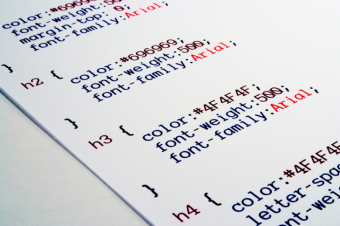 color:#696969;
font-weight:500;
margin-top: 0;
font-family:Arial;
}
h2 {
color:#696969;
font-weight:500;
font-family:Arial;
}
h3 {
color:#4F4F4F;
font-weight:500;
font-family:Arial;
}
h4 {
color:#4F4F4F
letter-spac
font-wei